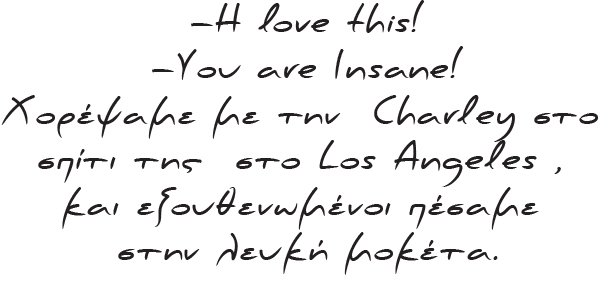 -H love this!
-You are Insane!
Χορέψαμε με την Charley στο
σπίτι της στο Los Angeles ,
και εξουθενωμένοι πέσαμε
στην λευκή μοκέτα.